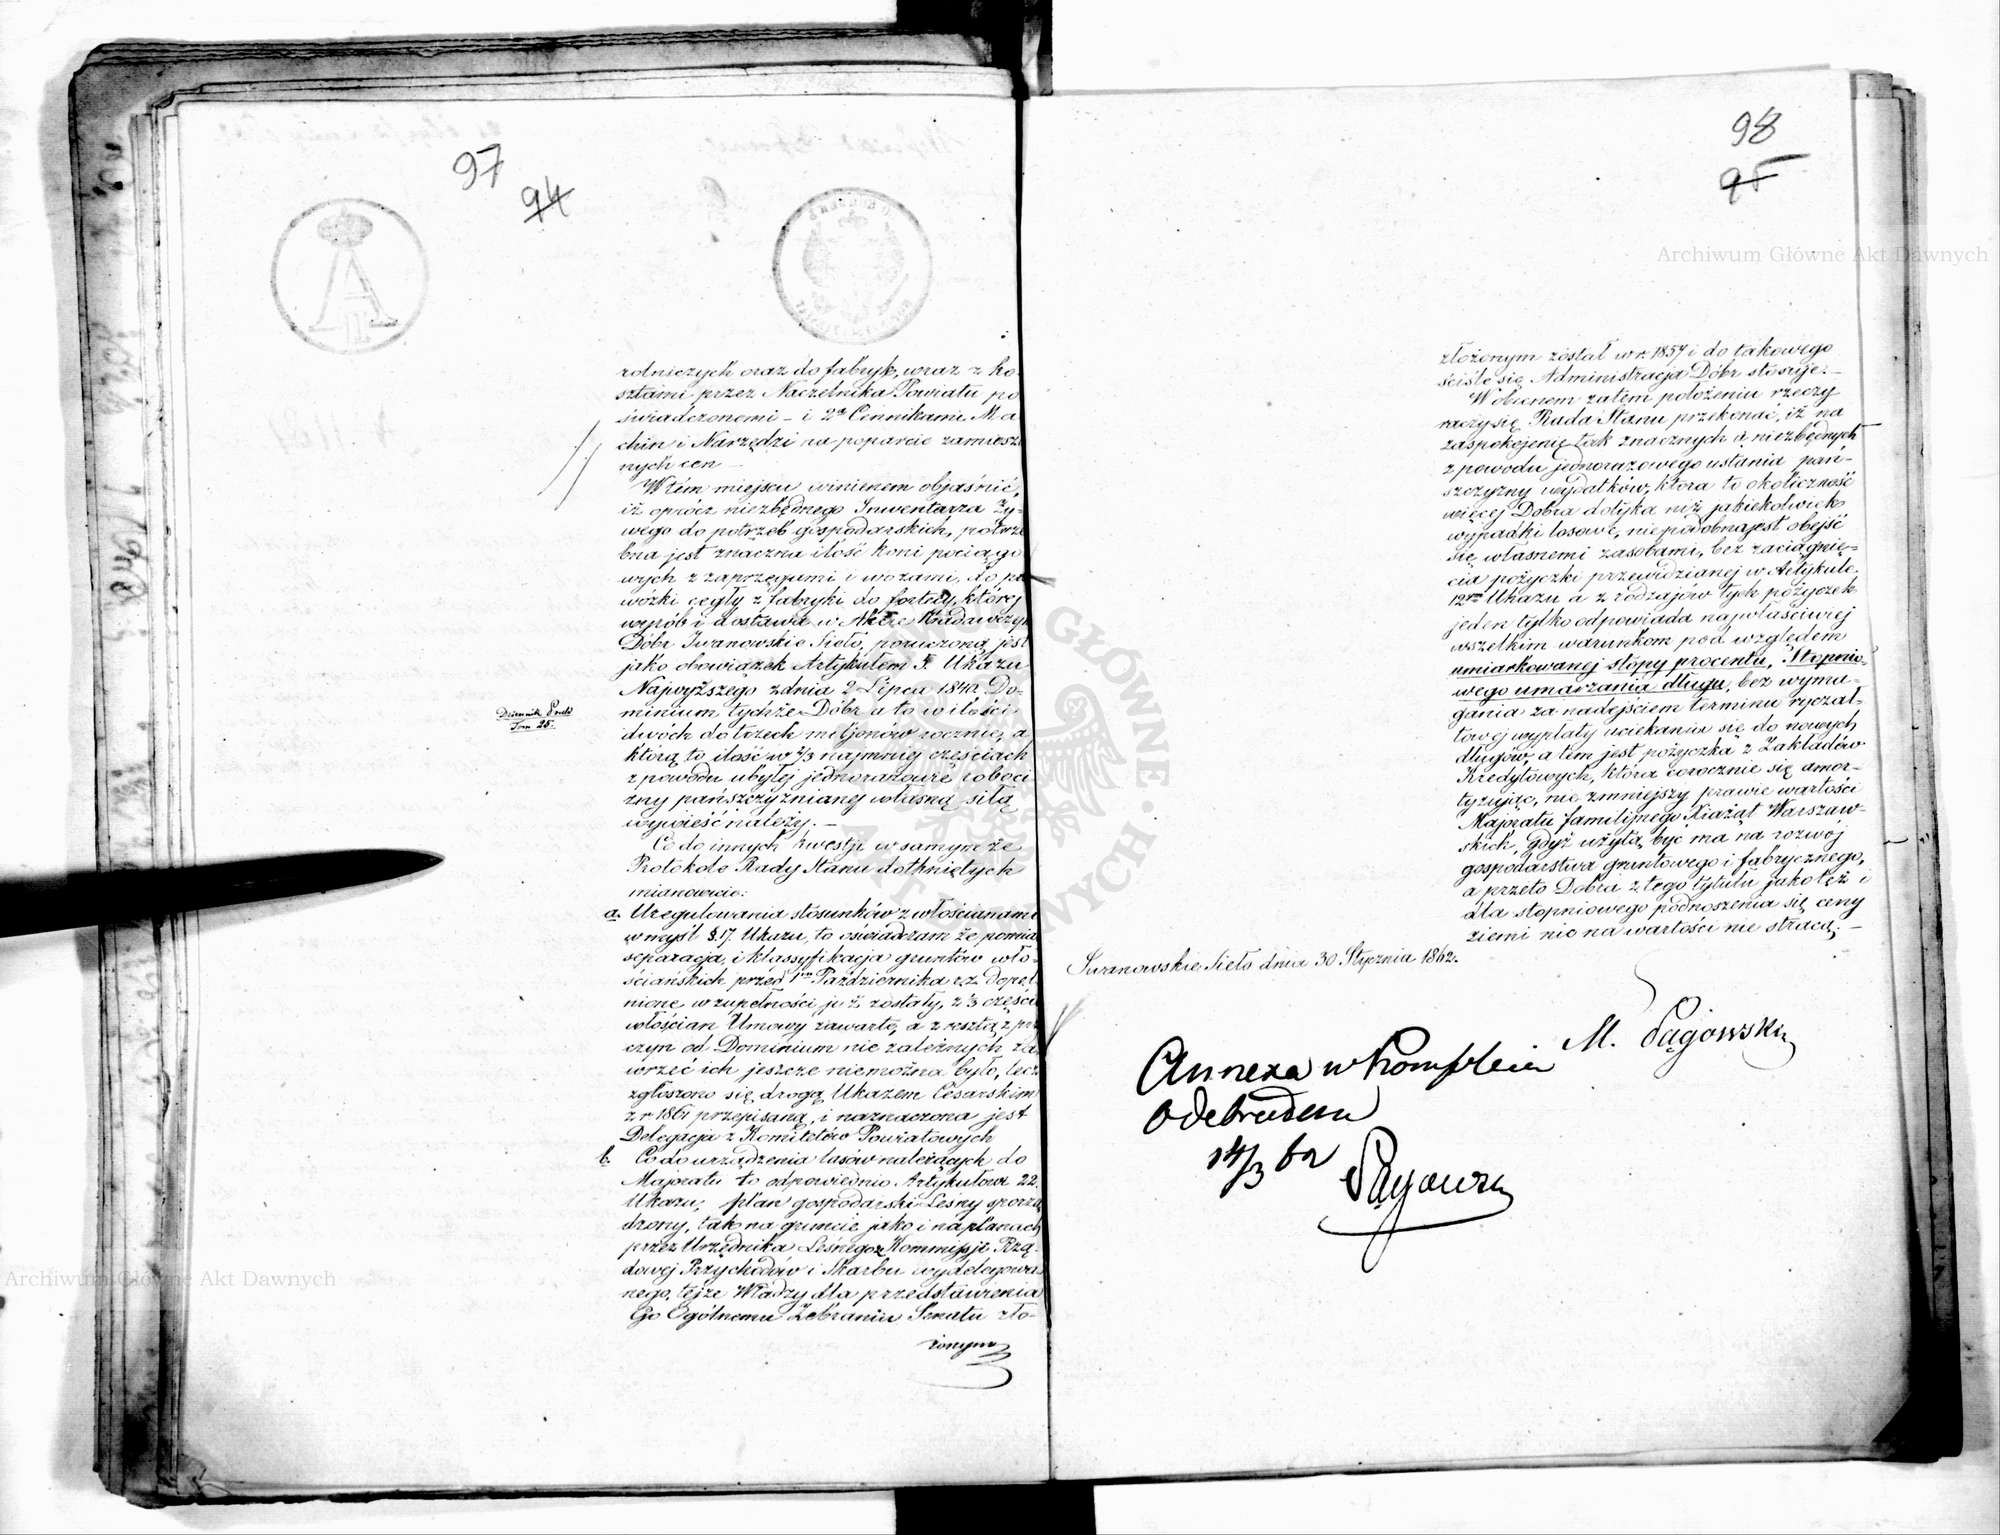 97
94
rolniczych oraz do fabryk, wraz z ko
sztami przez Naczelnika Powiatu po
świadczonemi – i 2a Cennikami Ma
chin i Narzędzi na poparcie zamiesz
nych cen –
W tém miejscu winienem objaśnić,
iż oprócz niezbędnego Inwentarza Ży-
wego do potrzeb gospodarskich, potrze
bna jest znaczna ilość koni pociągo
wych z zaprzęgami i wozami, do
wózki cegły z fabryki do fortecy, której
wyrób i dostawa w Akcie
Dóbr Iwanowskie Sieło, poruczoną jest
jako obowiązek Artykułem 5 Ukazu
Najwyższego z dnia 2 Lipca 1840. Do-
minium tychże Dóbr a to w ilości
Dziennik Praw
Tom 25.
dwóch do trzech miljonów rocznie, a
którą to ilość w 2/3 najmniej częściach
z powodu ubyłej jednorazowie roboci
zny pańszczyznianej własną siłą
wywieść należy. –
Co do innych kwestji w samym że
Protokole Rady Stanu dotkniętych
mianowicie:
a. Uregulowania stosunków z włościanami
w myśl §. 17. Ukazu, to oświadczam że pomia
separacja, i klassyfikacja gruntów wło-
ściańskich przed 1ym Października r.z. dopeł-
nione w zupełności już zostały, z 2/3 części
włościan Umowy zawarto, a z resztą z prz
czyn od Dominium nie zależnych za
wrzeć ich jeszcze niemożna było, lecz
zgłoszono się drogą Ukazem Cesarskim
z r 1861 przepisaną, i naznaczona jest
Delegacja z Komitetów Powiatowych
b. Co do urządzenia lasów należących do
Majoratu to odpowiednio Artykułowi 22.
Ukazu, plan gospodarski Leśny sporzą
dzony, tak na gruncie jako i na planach
przez Urzędnika Leśnego z Kommissji Rzą-
dowej Przychodów i Skarbu wydelegowa
nego, tejże Władzy dla przedstawienia
Go Ogólnemu Zebraniu Senatu zło-
żonym
98
95
złożonym został w r. 1857 i do takowego
ściśle się Administracja Dóbr stosuje. –
W obecnem zatém położeniu rzeczy
raczy się Rada Stanu przekonać, iż na
zaspokojenie tak znacznych a niezbędnych
z powodu jednorazowego ustania pań-
szczyzny wydatków, która to okoliczność
więcej Dobra dotyka niż jakiekolwiek
wypadki losowe, niepodobna jest obejść
się własnemi zasobami, bez zaciągnię-
cia pożyczki przewidzianej w Artykule
12ym Ukazu a z rodzajów tych pożyczek
jeden tylko odpowiada najwłaściwiej
wszelkim warunkom pod względem
umiarkowanej stopy procentu, Stopnio-
wego umarzania długu, bez wyma-
gania za nadejściem terminu ryczał-
towej wypłaty uciekania się do nowych
długów, a tem jest pożyczka z Zakładów
Kredytowych, która corocznie się amor-
tyzując, nie zmniejszy prawie wartości
Majoratu familijnego Xiążąt Warszaw-
skich, Gdyż użytą być ma na rozwój
gospodarstwa gruntowego i fabrycznego,
a przeto Dobra z tego tytułu jako też i
dla stopniowego podnoszenia się ceny
ziemi nic na wartości nie stracą. –
Iwanowskie Sieło dnia 30 Stycznia 1862.
M. Pągowski
Annexa w komplecie
Odebrałem
14/3 62
Pągowski
Archiwum Główne Akt Dawnych
Archiwum Główne Akt Dawnych